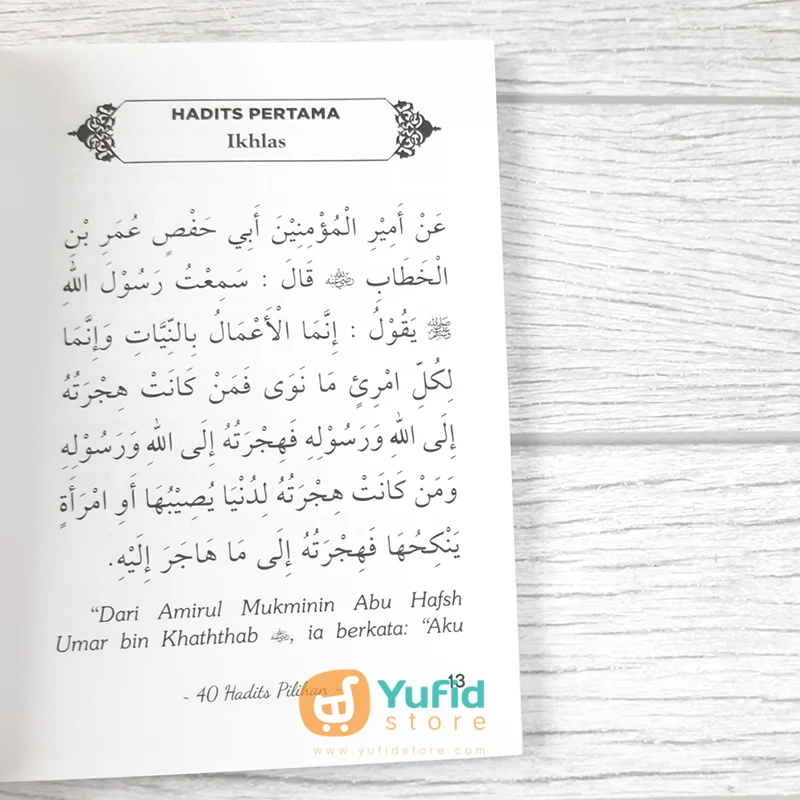 HADITS PERTAMA
Ikhlas
عَنْ أَمِيْرِ الْمُؤْمِنِيْنَ أَبِي حَفْصٍ عُمَرِ بْنِ
الْخَطَابِ رضي الله عنه قَالَ : سَمِعْتُ رَسُوْلَ اللهِ
ﷺ يَقُوْلُ : إِنَّمَا الْأَعْمَالُ بِالنِّيَّاتِ وَإِنَّمَا
لِكُلِّ امْرِئٍ مَا نَوَى فَمَنْ كَانَتْ هِجْرَتُهُ
إِلَى اللهِ وَرَسُوْلِهِ فَهِجْرَتُهُ إِلَى اللهِ وَرَسُوْلِهِ
وَمَنْ كَانَتْ هِجْرَتُهُ لِدُنْيَا يُصِيْبُهَا أَوِ امْرَأَةٍ
يَنْكِحُهَا فَهِجْرَتُهُ إِلَى مَا هَاجَرَ إِلَيْهِ.
“Dari Amirul Mukminin Abu Hafsh
Umar bin Khaththab رضي الله عنه, ia berkata: “Aku
~ 40 Hadits Pilihan ~
13
Yufid
store
www.yufidstore.com